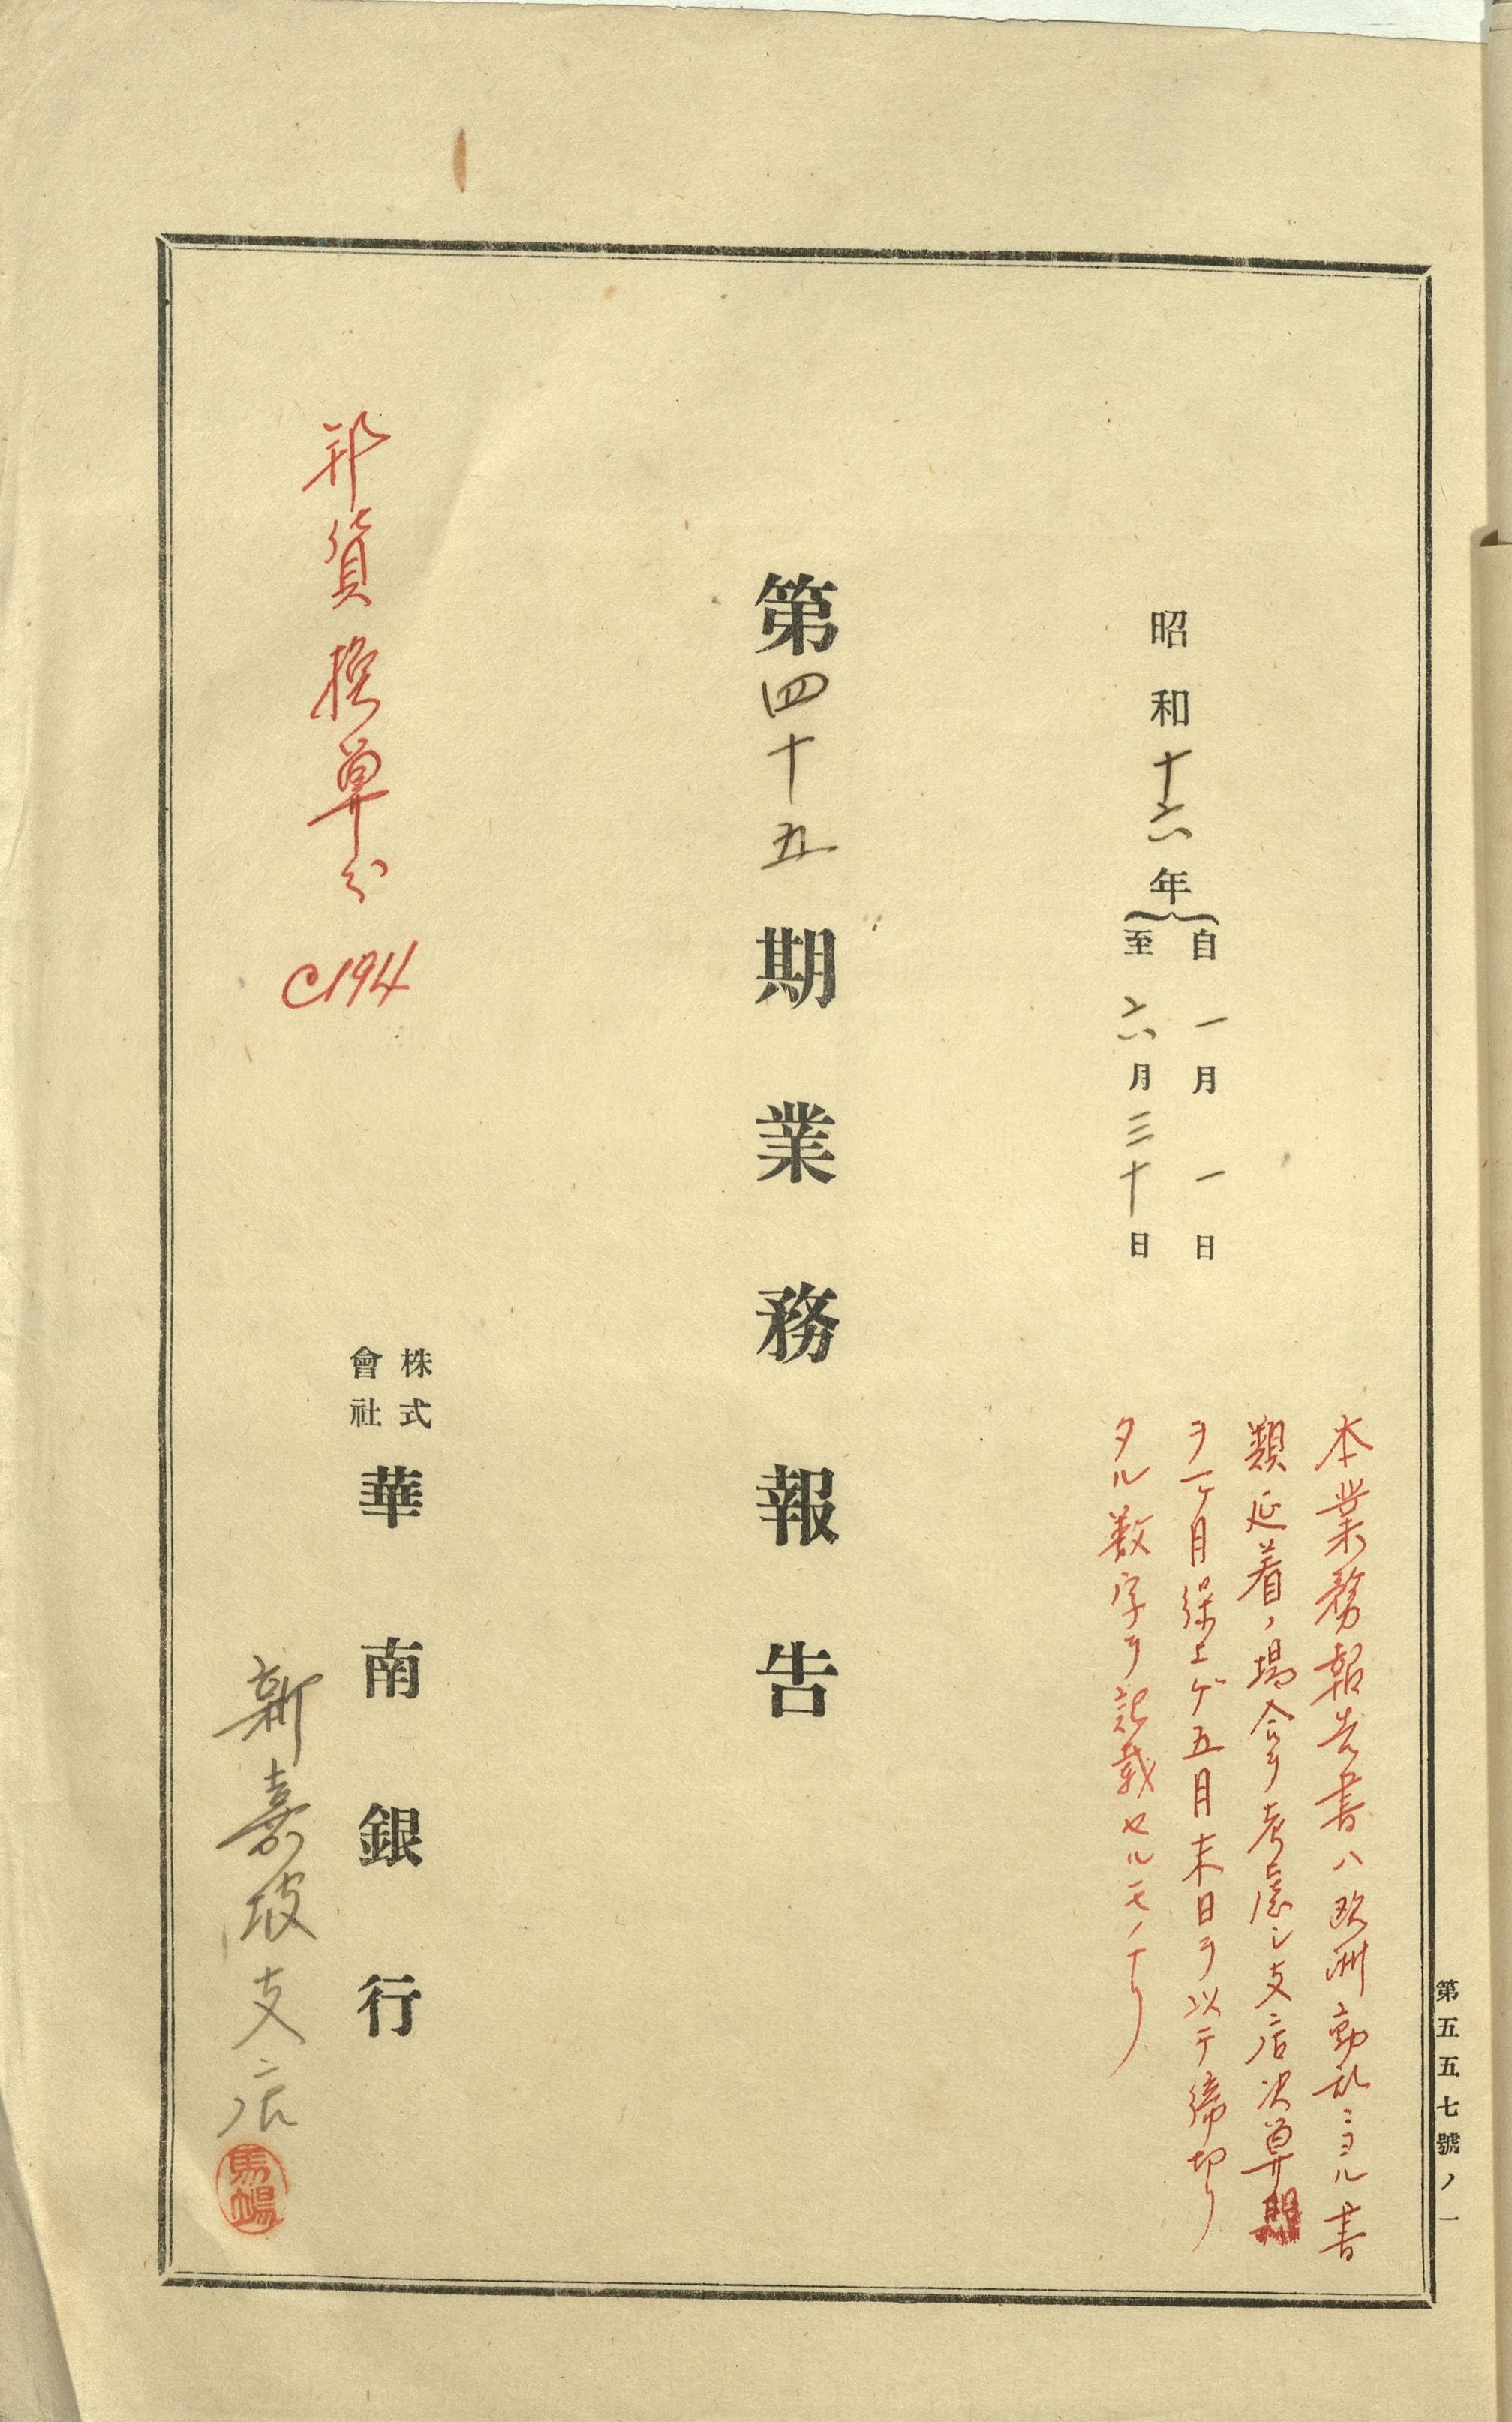 第五五七號ノ一
本業務報告書ハ欧洲動乱ニヨル書
類延着ノ場合ヲ考慮シ支店決算期
ヲ一ケ月繰上ゲ五月末日ヲ以テ締切リ
タル数字ヲ記載セルモノナリ
昭和十六年
自一月一日
至六月三十日
第四十五期業務報告
邦貨換算分 @194
株式會社華南銀行
新嘉坡支店